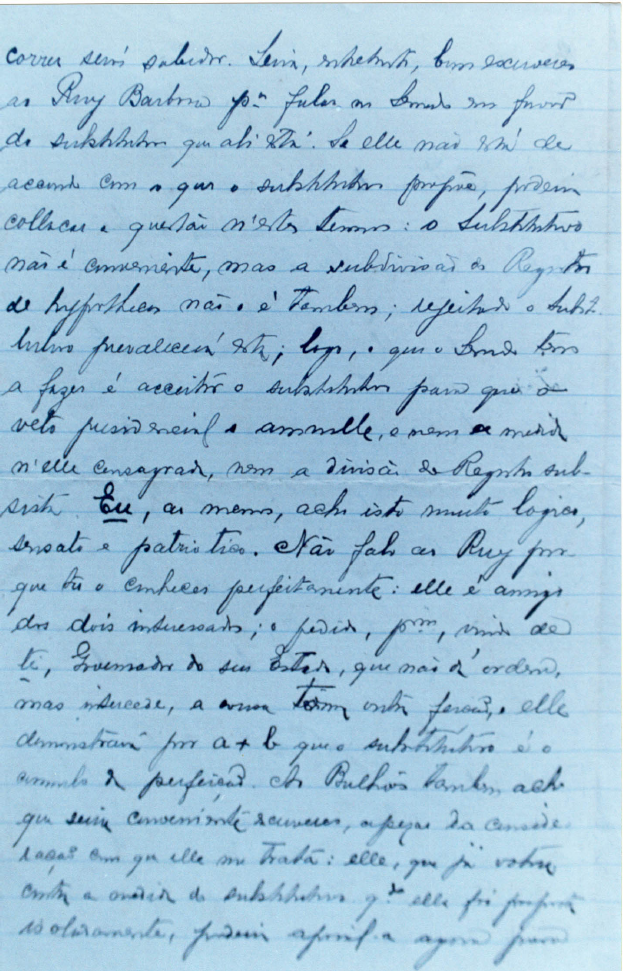 correr será sabedor. Seria, entretanto, bom escreveres
ao Ruy Barbosa pª fallar no Senado em favor
do substitutivo que ali está. Se elle não está de
accordo com o que o substitutivo propõe, poderia
collocar a questão n'estes termos: o Substitutivo
não é conveniente, mas a subdivisão do Registro
de hypothecas não o é tambem; rejeitado o Subst.
tutivo prevalecerá esta; logo, o que o Senado tem
a fazer é acceitar o substitutivo para que o
veto presidencial o annulle, e nem a medida
n'elle consagrada, nem a divisão do Registro sub-
sista. Eu, ao menos, acho isto muito logico,
sensato e patriotico. Não fallo ao Ruy por-
que tu o conheces perfeitamente: elle é amigo
dos dois interessados; o pedido, pm, vindo de
ti, Governador do seu Estado, que não dá ordem,
mas intercede, a cousa toma outra feição, e elle
demonstrará por a + b que o substitutivo é o
cumulo da perfeição. Ao Bulhões tambem acho
que seria conveniente escreveres, apezar da conside-
ração com que elle me trata: elle, que já votou
contra a medida do substitutivo qdo ella foi proposta
isoladamente, poderia apoial-a agora para